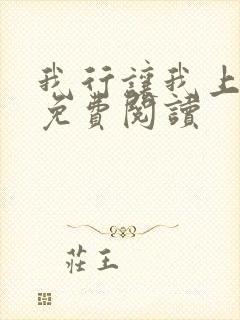 我行讓我上
免費閱讀
莊王